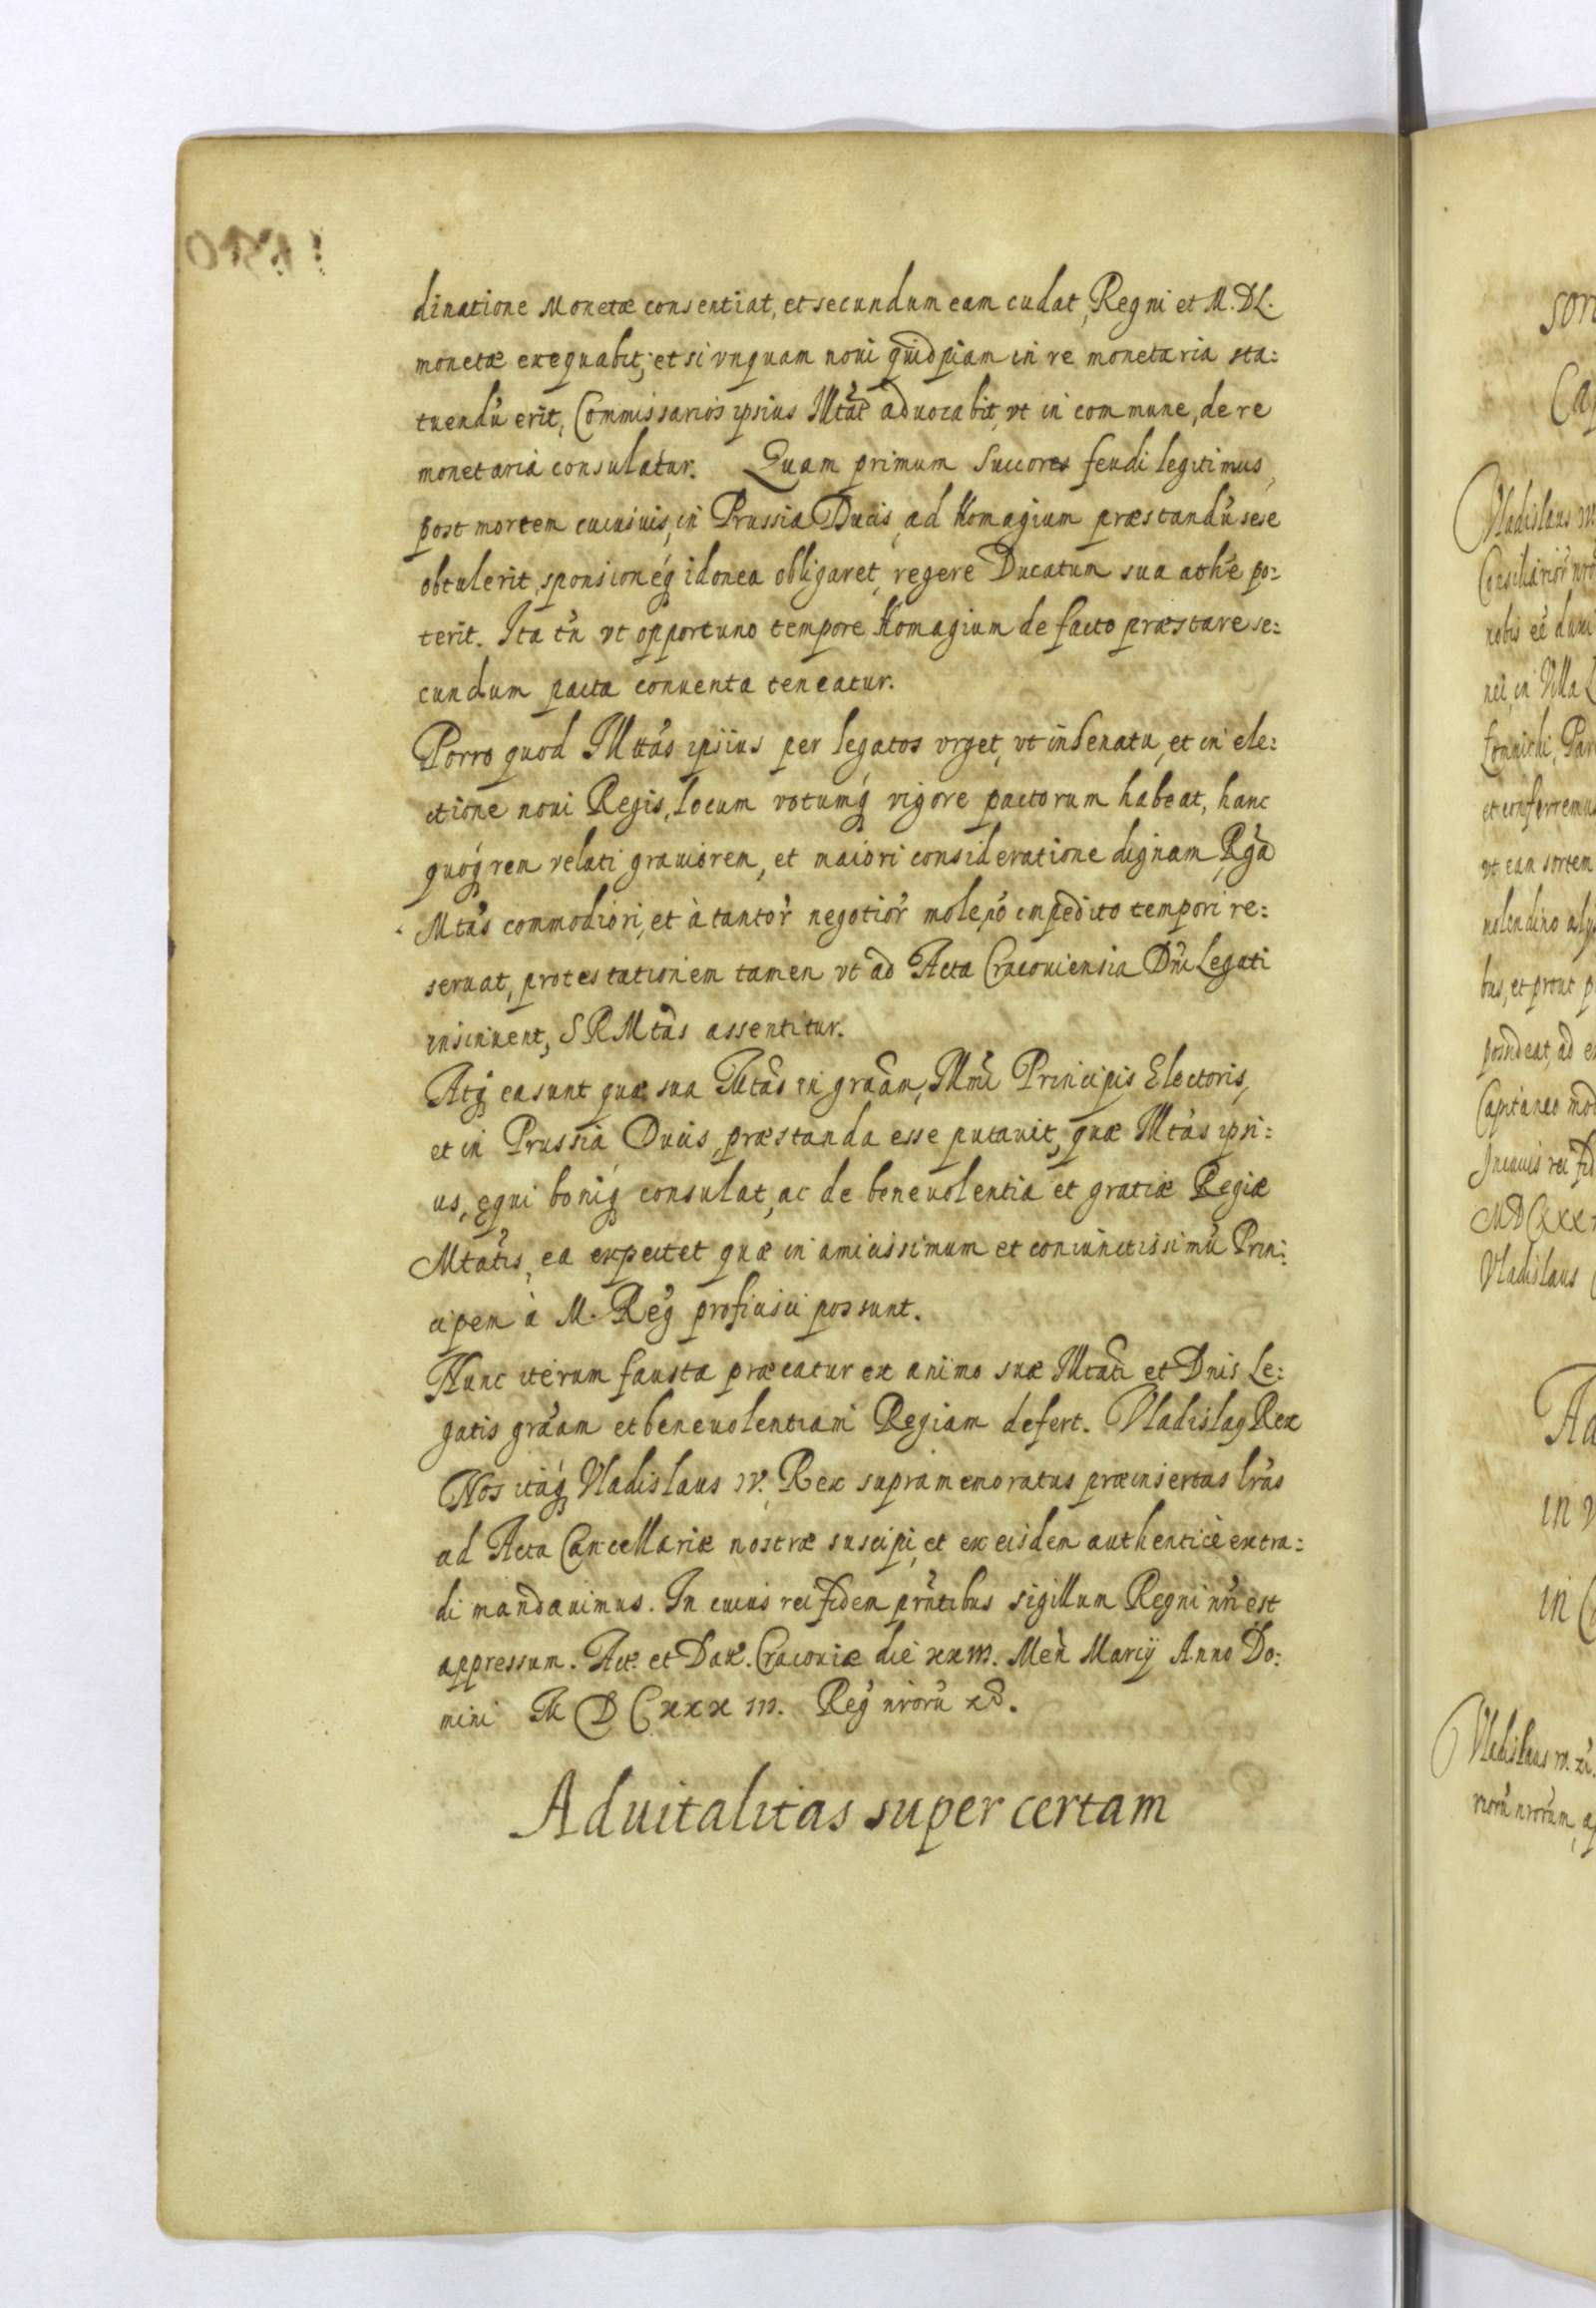 dinatione Monetæ consentiat, et secundum eam cudat, Regni et M. D L.
monetæ exequabit; et si vnquam noui quidpiam in re monetaria sta:
tuendũ erit, Commissarios ipsius Illtat aduocabit, vt in commune, de re
monetaria consulatur. Quam primum Succores feudi legitimus,
post mortem cuiusuis, in Prussia Ducis, ad Homagium præstandũ sese
obtulerit, sponsioneq idonea obligaret, regere Ducatum sua athe po:
terit. Ita tñ vt opportuno tempore Homagium de facto præstare se:
cundum pacta conuenta teneatur.
Porro quod Illtas ipsius per legatos vrget, vt in Senatu, et in ele:
ctione noui Regis, locum votumq vigore pactorum habeat, hanc
quoq rem velati grauiorem, et maiori consideratione dignam, Rga
Mtas commodiori, et à tantor negotior mole, impedito tempori re:
seruat, protestationem tamen vt ad Acta Cracouiensia Dni Legati
insinuent, S R Mtas assentitur.
Atq ea sunt quæ sua Mtas in graam, Illmi Principis Electoris,
et in Prussia Ducis, præstanda esse putauit, quæ Illtas ipsi:
us, equi boniq consulat, ac de beneuolentia et gratiæ Regiæ
Mtatis, ea expectet quæ in amicissimum et coniunctissimũ Prin:
cipem à M. Reg proficisci possunt.
Nunc iterum fausta præcatur ex animo suæ Illtati et Dnis Le:
gatis graam et beneuolentiam Regiam defert. Vladislaq Rex
Nos itaq Vladislaus IV. Rex supramemoratus præinsertas lras
ad Acta Cancellariæ nostræ suscipi, et ex eisdem authenticè extra:
di mandauimus. In cuius rei fidem pñtibus sigillum Regni nri est
appressum. Act. et Dat. Cracouiæ die xxIII. Men Marcij Anno Do:
mini M D C xxx III. Reg nrorũ
Aduitalitas super certam